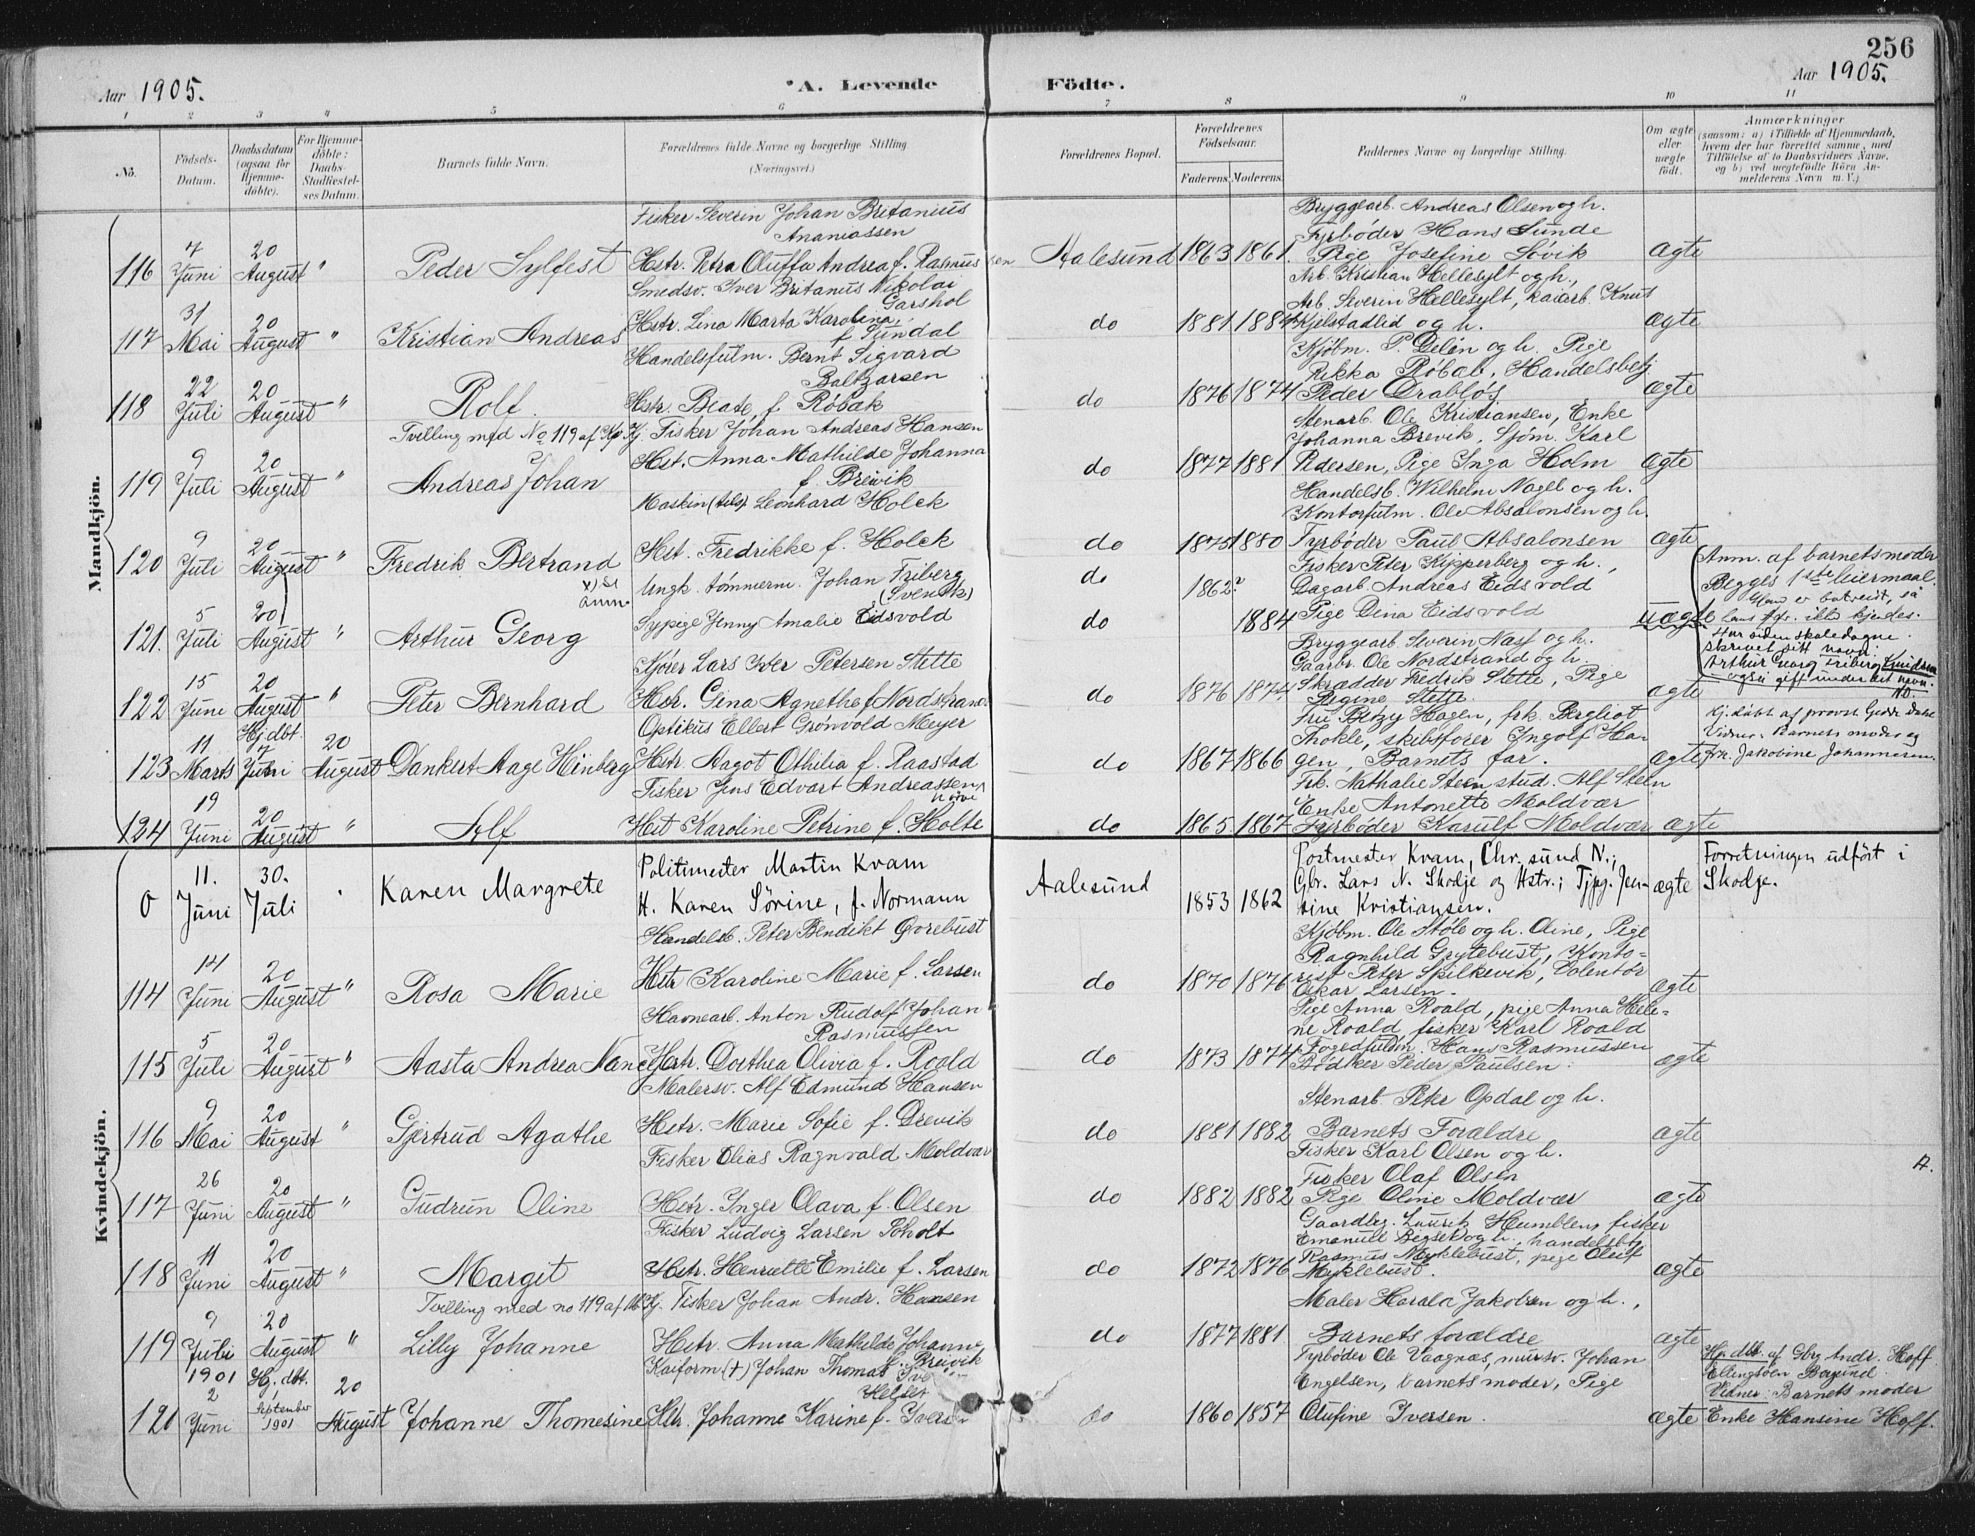 256
Aar 1905.
"A. Levende Födte.
Aar 1905.
1 2 3 4 5 6 7 8 9 10 11
No.
Födsels-Datum.
Daabsdatum (ogsaa for Hjemme-döbte).
For Hjemme-döbte: Daabs-Stadfæstel-ses Datum.
Barnets fulde Navn.
Forældrenes fulde Navne og borgerlige Stilling (Næringsvei.)
Forældrenes Bopæl.
Forældrenes Födselsaar.
Faderens. Moderens.
Faddernes Navne og borgerlige Stilling.
Om ægte eller uægte födt.
Anmærkninger
(saasom: a) i Tilfælde af Hjemmedaab, hvem der har forrettet samme, med Tilföielse af to Daabsvidners Navne, og b) ved uægtefödte Börn Anmelderens Navn m. V.)
Mandkjön.
116 7 Juni 20 August " Peder Sylfest
Fisker Severin Johan Britanius
Ananiassen
Hstr. Petra Oluffa Andrea f. Rasmussen
Aalesund 1863 1861
Bryggearb. Andreas Olsen og h.
Fyrbøder Hans Sunde
Pige Josefine Søvik
ægte
117 31 Mai 20 August " Kristian Andreas
Smedsv. Iver Britanius Nikolai
Garshol
Hstr. Lina Marta Karolina
f. Sundal
do 1881 1884
Arb. Kristian Hellesylt og h.,
Arb. Severin Hellesylt, kaiarb. Knut
Kjelstadlid og h.
ægte
118 22 Juli 20 August " Rolf.
Handelsfulm. Bernt Sigvard
Baltzarsen
Hstr. Beate, f. Røbæk
do 1876 1874
Kjøbm. P. Delên og h. Pige
Rikka Røbæk, Handelsbetj
Peder Drabløs
ægte
Tvilling med No 119 af Kv Kj.
119 9 Juli 20 August " Andreas Johan
Fisker Johan Andreas Hansen
Hst. Anna Mathilde Johanna
f. Breivik
do 1877 1881
Stenarb. Ole Kristiansen, Enke
Johanna Brevik, Sjøm. Karl
Pedersen, Pige Inga Holm
ægte
120 9 Juli 20 August " Fredrik Bertrand
Maskin Leonhard Holck
Hst. Fredrikke f. Holck
do 1875 1880
Handelsb. Wilhelm Nagel og h.
Kontorfulm. Ole Absalonsen og h.
Fyrbøder Paul Absalonsen
ægte
121. 5 Juli 20 August " Arthur Georg
x) se anm.
Ungk. tømmerm. Johan Friberg
(Svensk)
Sypige Jenny Amalie Eidsvold
do 1862?
do 1884
Fisker Peter Kipperberg og h.,
Dagarb. Andreas Eidsvold
Pige Dina Eidsvold
uægte
Anm. af barnets moder
Begges 1ste leiermaal.
Har siden skoledagne
skrevet sitt navn:
Arthur Georg Friberg Knudsen
også gift under det navn.
122 15 Juni 20 August " Peter Bernhard
Sjøier Lars Iver Petersen Stette
Hstr. Gina Agnethe f. Nordstrand.
do 1876 1874
Bryggearb Severin Nass og h.
Gaarbr. Ole Nordstrand og h.
Skrædder Fredrik Stette, Pige
Regine Stette.
ægte
123 11 Marts Hj.dbt. 7 Juni 20 August Dankert Aage Hinberg
Optikus Ellert Grönvold Meyer
Hstr. Aagot Othilia f. Raastad
do 1867 1866
Fru Betzy Hagen, frk. Bergliot
Thokle, skibsfører Ingolf Ha-
gen, Barnets far.
ægte
Hj. døbt af provst Gedde Dahl
Vidner: Barnets moder og
frk. Jakobine Johannesen.
124 19 Juni 20 August " Alf
Fisker Jens Edvart Andreassen
Nørve
Hst Karoline Petrine f. Holte
do 1865 1867
Frk. Nathalie Steen, stud. Alf Steen
Enke Antonette Moldvær
Fyrbøder Karulf Moldvær
ægte
Kvindekjön.
0 11. Juni 30. Juli " Karen Margrete
Politimester Martin Kvam
H. Karen Sörine, f. Normann
Aalesund 1853 1862
Postmester Kvam, Chr.sund N.;
Gbr. Lars N. Skodje og Hstr.; Tjpg. Jen-
sine Kristiansen.
ægte
Forretningen udfört i
Skodje.
114 14 Juni 20 August " Rosa Marie
Handelsb. Peter Bendikt Qvrebust
Hstr Karoline Marie f. Larsen
do 1870 1876
Kjøbm. Ole Støle og h. Oline, Pige
Ragnhild Grytebust, Konto-
rist Peter Spilkevik, Volentør
Oskar Larsen.
ægte
115 5 Juli 20 August " Aasta Andrea Nancy
Havnearb. Anton Rudolf Johan
Rasmussen
Hstr. Dorthea Olivia f. Roald
do 1873 1874
Pige Anna Roald, pige Anna Hele-
ne Roald, fisker Karl Roald
Fogedfuldm. Hans Rasmussen
Bødker Peder Paulsen.
ægte
116 9 Mai 20 August " Gjertrud Agathe
Malersv. Alf Edmund Hansen
Hstr. Marie Sofie f. Drevik
do 1881 1882
Stenarb. Peter Opdal og h.
Barnets Forældre
ægte
117 26 Juni 20 August " Gudrun Oline
Fisker Olias Ragnvald Moldvær
Hstr. Inger Olava f. Olsen
do 1882 1882
Fisker Karl Olsen og h.
Fisker Olaf Olsen
Pige Oline Moldvær
ægte
118 11 Juni 20 August " Margit
Fisker Ludvig Larsen Søholt
Hstr. Henriette Emilie f. Larsen
do 1872 1876
Gaardbrg. Laurits Humblen, fisker
Emanuel Begset og h., handelsbtj
Rasmus Myklebust, pige Oluf
Myklebust.
ægte
Tvilling med no 119 af M Kj.
119 9 Juli 20 August " Lilly Johanne
Fisker Johan Andr. Hansen
Hstr. Anna Mathilde Johanne
f. Breivik
do 1877 1881
Maler Harald Jakobsen og h.,
Barnets forældre
ægte
120 1901 2 Juni Hj. dbt. 1 September 1901 20 August Johanne Thomesine
Kaiform (+) Johan Thomas
Helset
Hstr. Johanne Karine f. Iversen
do 1860 1857
Fyrbøder Ole Vaagnæs, mursv. Johan
Engelsen, barnets moder, Pige
Olufine Iversen.
ægte
Hj. dbt. af Gbrg Andr. Hoff
Ellingsøen Borgund.
Vidner: Barnets moder
Enke Hansine Hoff.